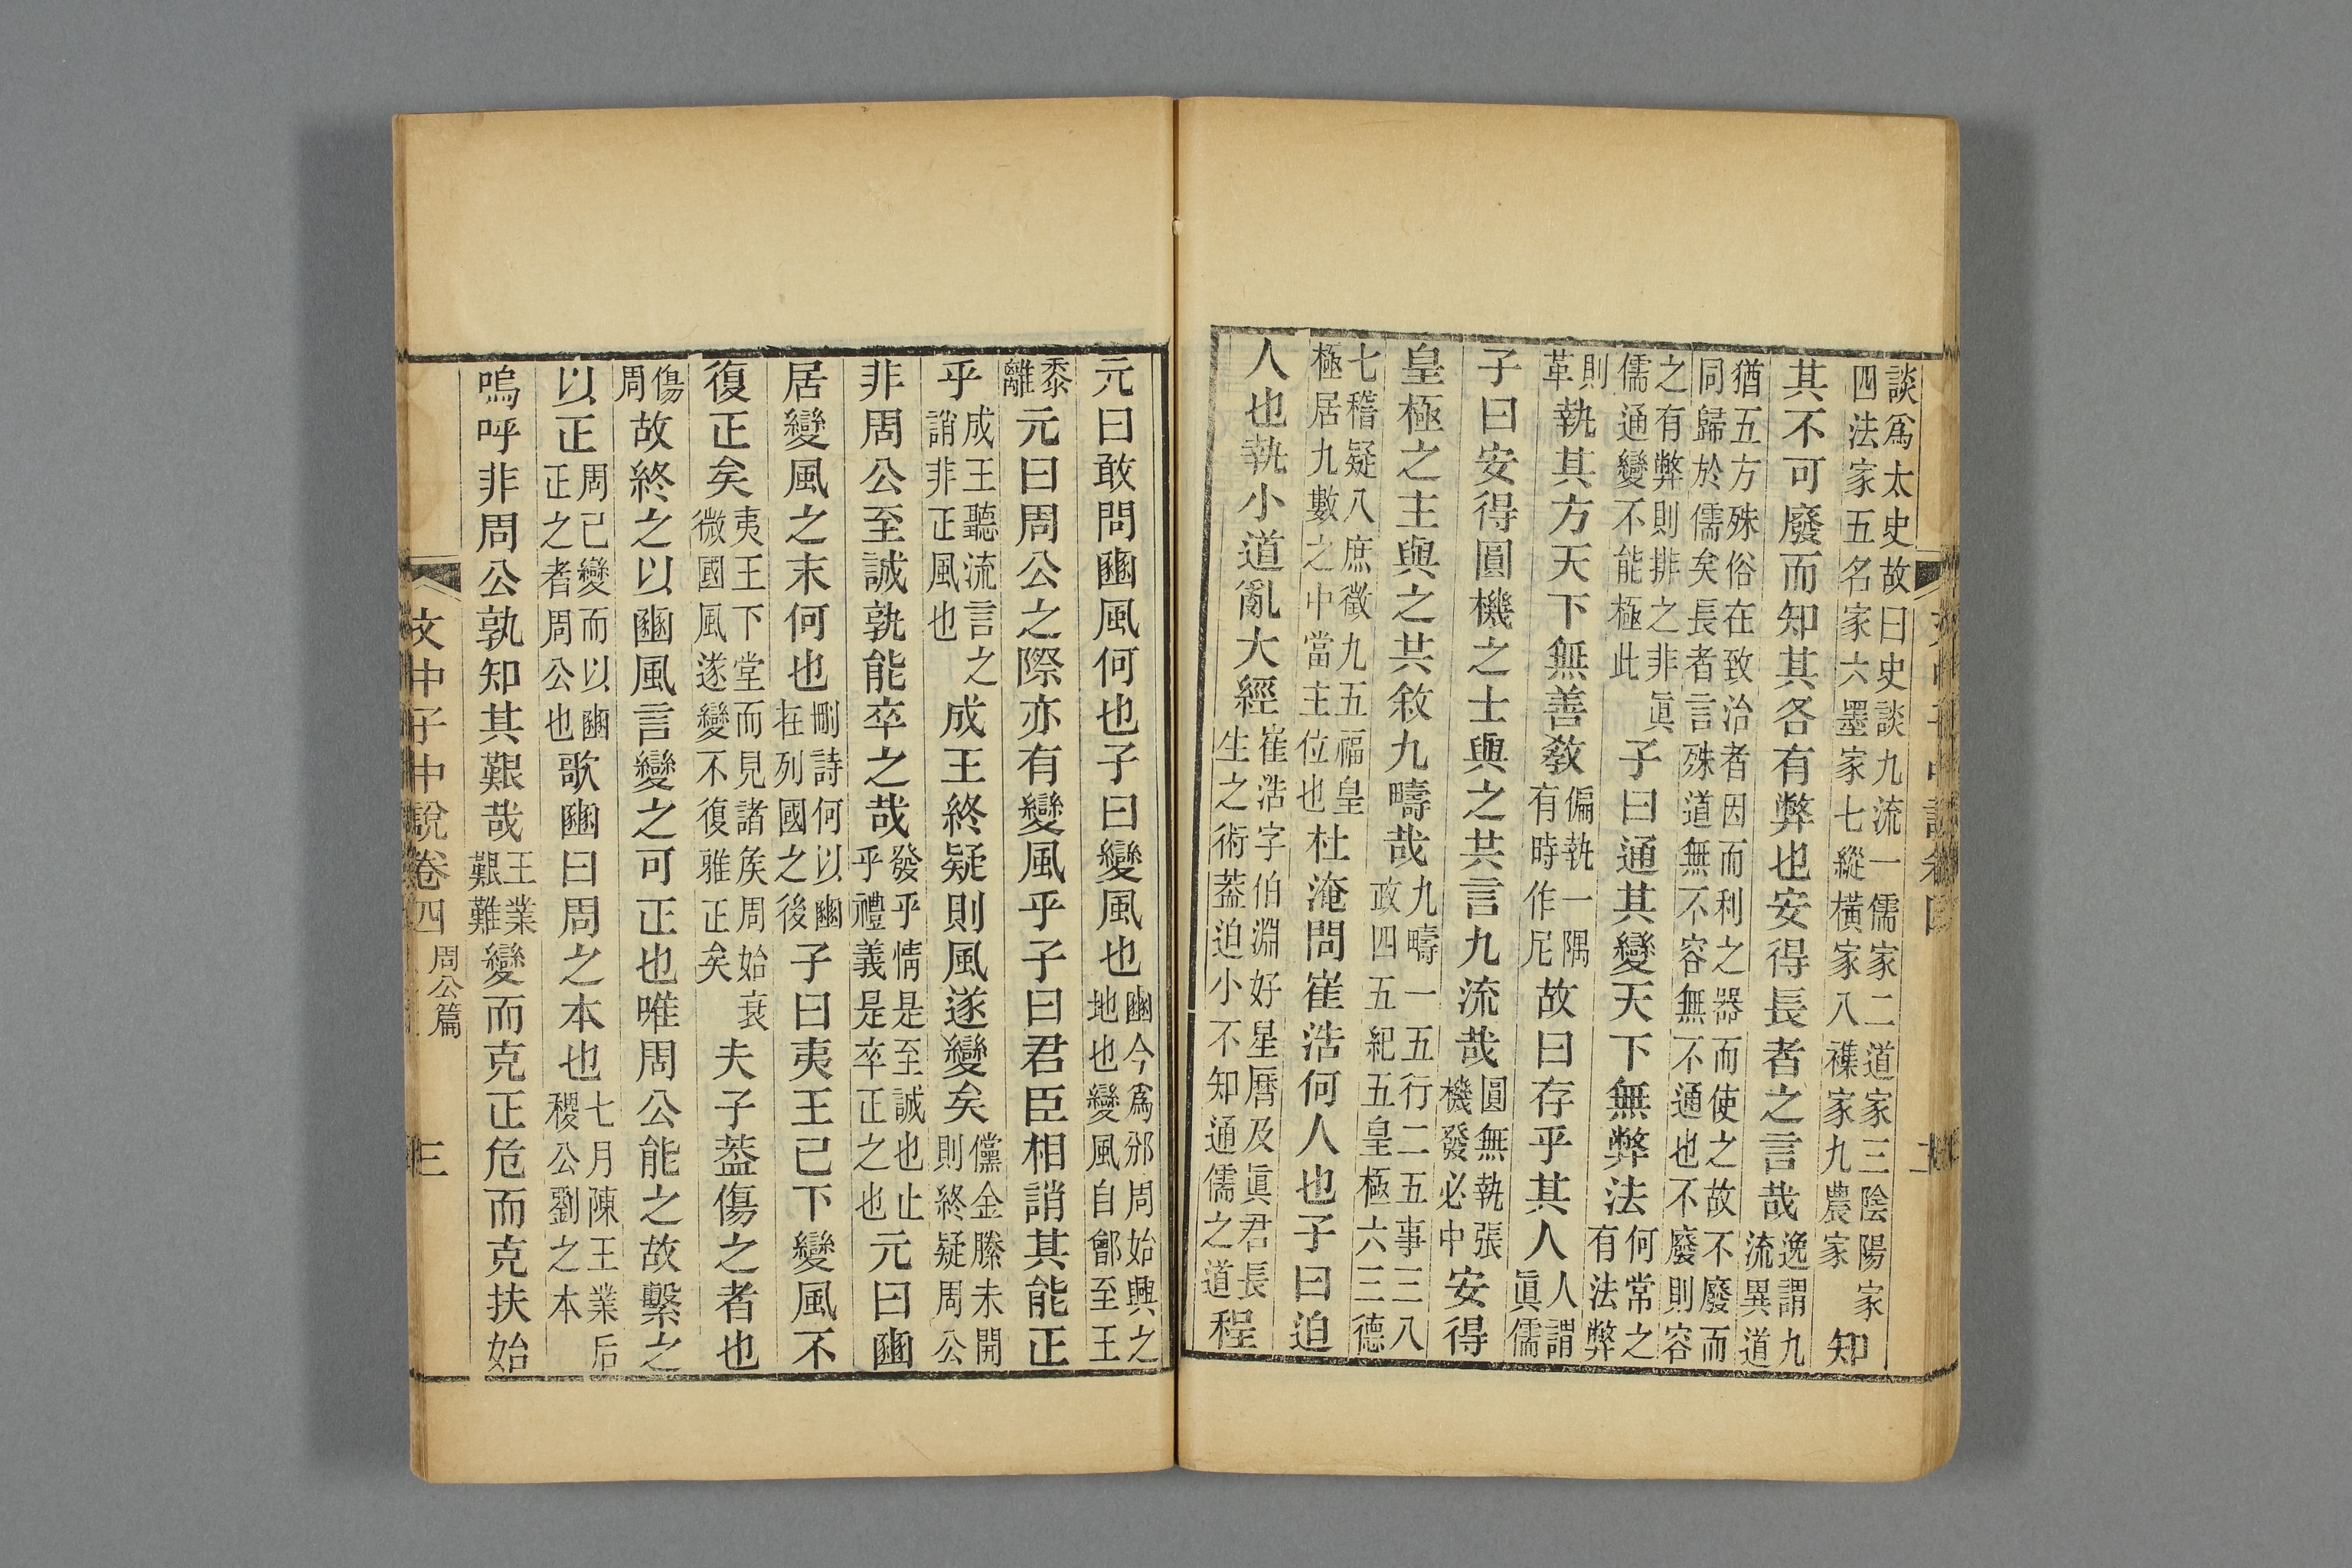 談爲太史故曰史談九流一儒家二道家三陰陽家四法家五名家六墨家七縱橫家八襍家九農家知
其不可廢而知其各有弊也安得長者之言哉逸謂九流異道
猶五方殊俗在致治者因而利之器而使之故不廢而同歸於儒矣長者言殊道無不容無不通也不廢則容
之有弊則排之非眞儒通變不能極此子曰通其變天下無弊法何常之有法弊
則革執其方天下無善敎偏執一隅有時作尼故曰存乎其人人謂眞儒
子曰安得圓機之士與之共言九流哉圓無執張機發必中安得
皇極之主與之共敘九疇哉九疇一五行二五事三八政四五紀五皇極六三德
七稽疑八庶徵九五福皇極居九數之中當主位也杜淹問崔浩何人也子曰迫
人也執小道亂大經崔浩字伯淵好星曆及眞君長生之術葢迫小不知通儒之道程
元曰敢問豳風何也子曰變風也豳今爲邠周始興之地也變風自鄶至王
黍離元曰周公之際亦有變風乎子曰君臣相誚其能正
乎成王聽流言之誚非正風也成王終疑則風遂變矣儻金縢未開則終疑周公
非周公至誠孰能卒之哉發乎情是至誠也止乎禮義是卒正之也元曰豳
居變風之末何也刪詩何以豳在列國之後子曰夷王已下變風不
復正矣夷王下堂而見諸矦周始衰微國風遂變不復雅正矣夫子葢傷之者也
傷周故終之以豳風言變之可正也唯周公能之故繫之
以正周已變而以豳正之者周公也歌豳曰周之本也七月陳王業后稷公劉之本
嗚呼非周公孰知其艱哉王業艱難變而克正危而克扶始
文中子中說卷四 周公篇 三